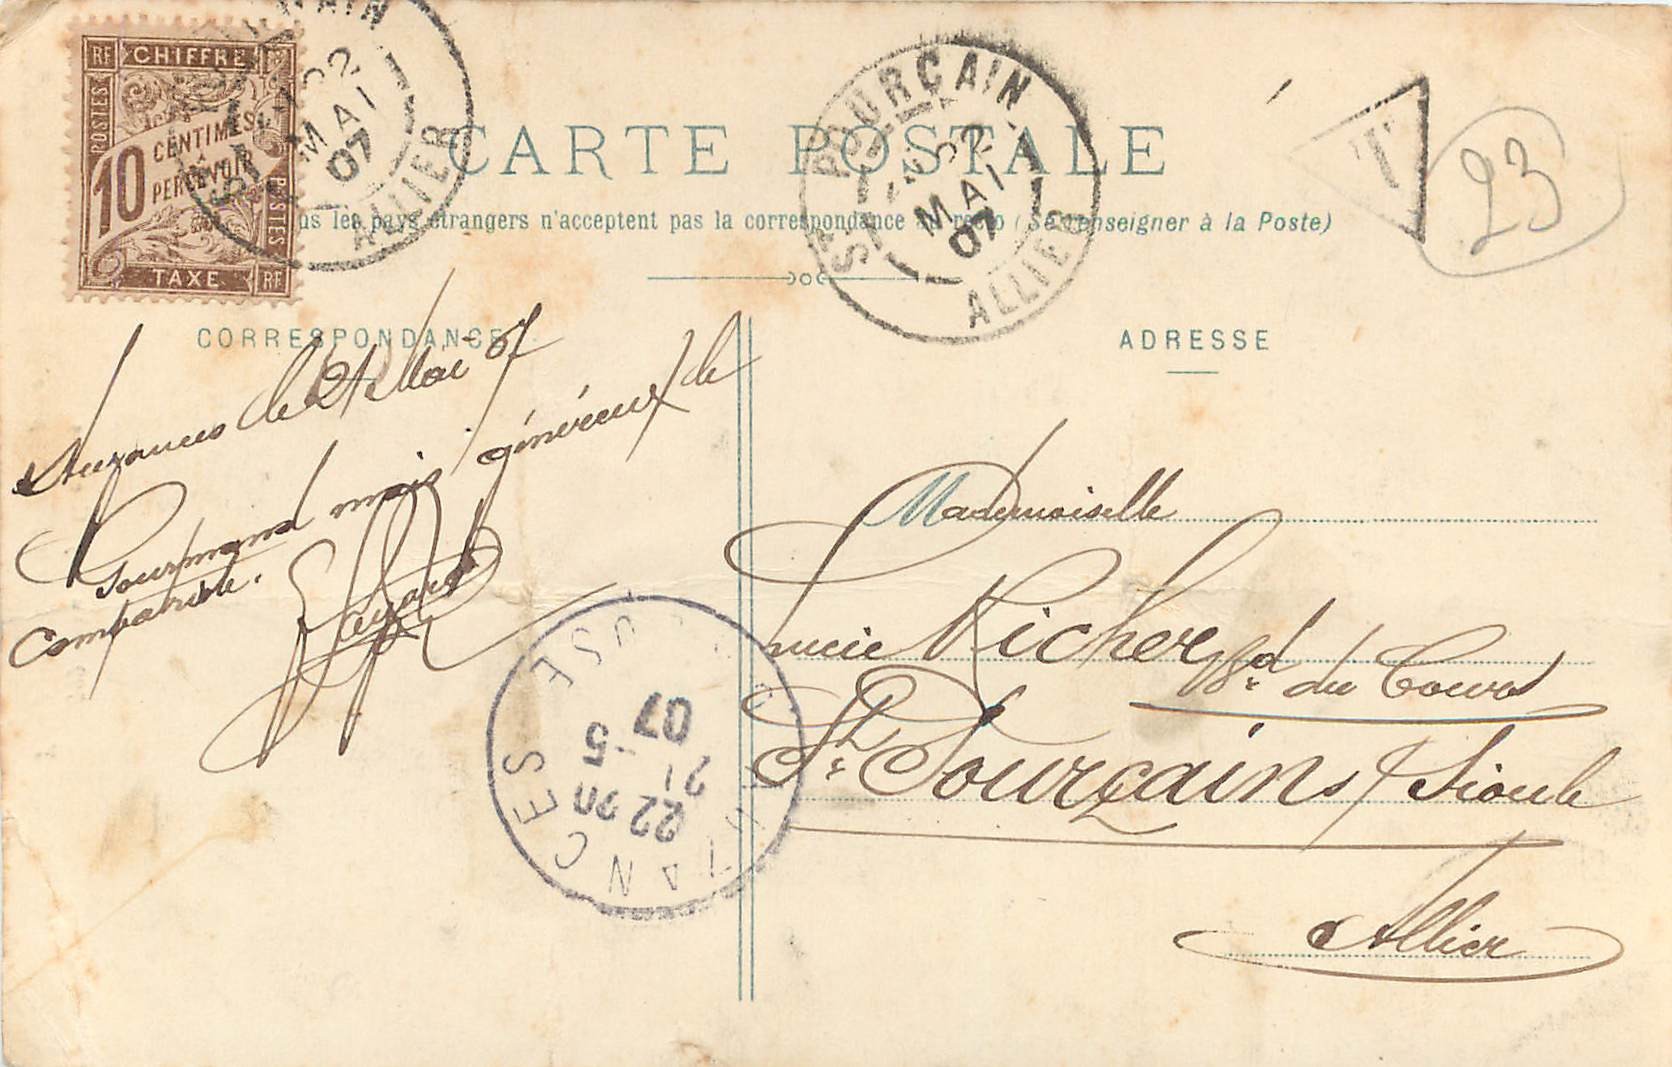 RF CHIFFRE RF
POSTES
10 CENTIMES
À PERCEVOIR
POSTES
TAXE RF
22
MAI
07
ALLIER
ST POURÇAIN
22
MAI
07
ALLIER
T
23
CARTE POSTALE
us les pays étrangers n'acceptent pas la correspondance au recto (Se renseigner à la Poste)
CORRESPONDANCE
ADRESSE
Auzances le 21 Mai 07
Gourmand mais généreux le
compatriote.
Mademoiselle
Lucie Richer Bd du Cours
St Pourçain s/ Sioule
Allier
AUZANCES CREUSE
22 20
21 -5
07